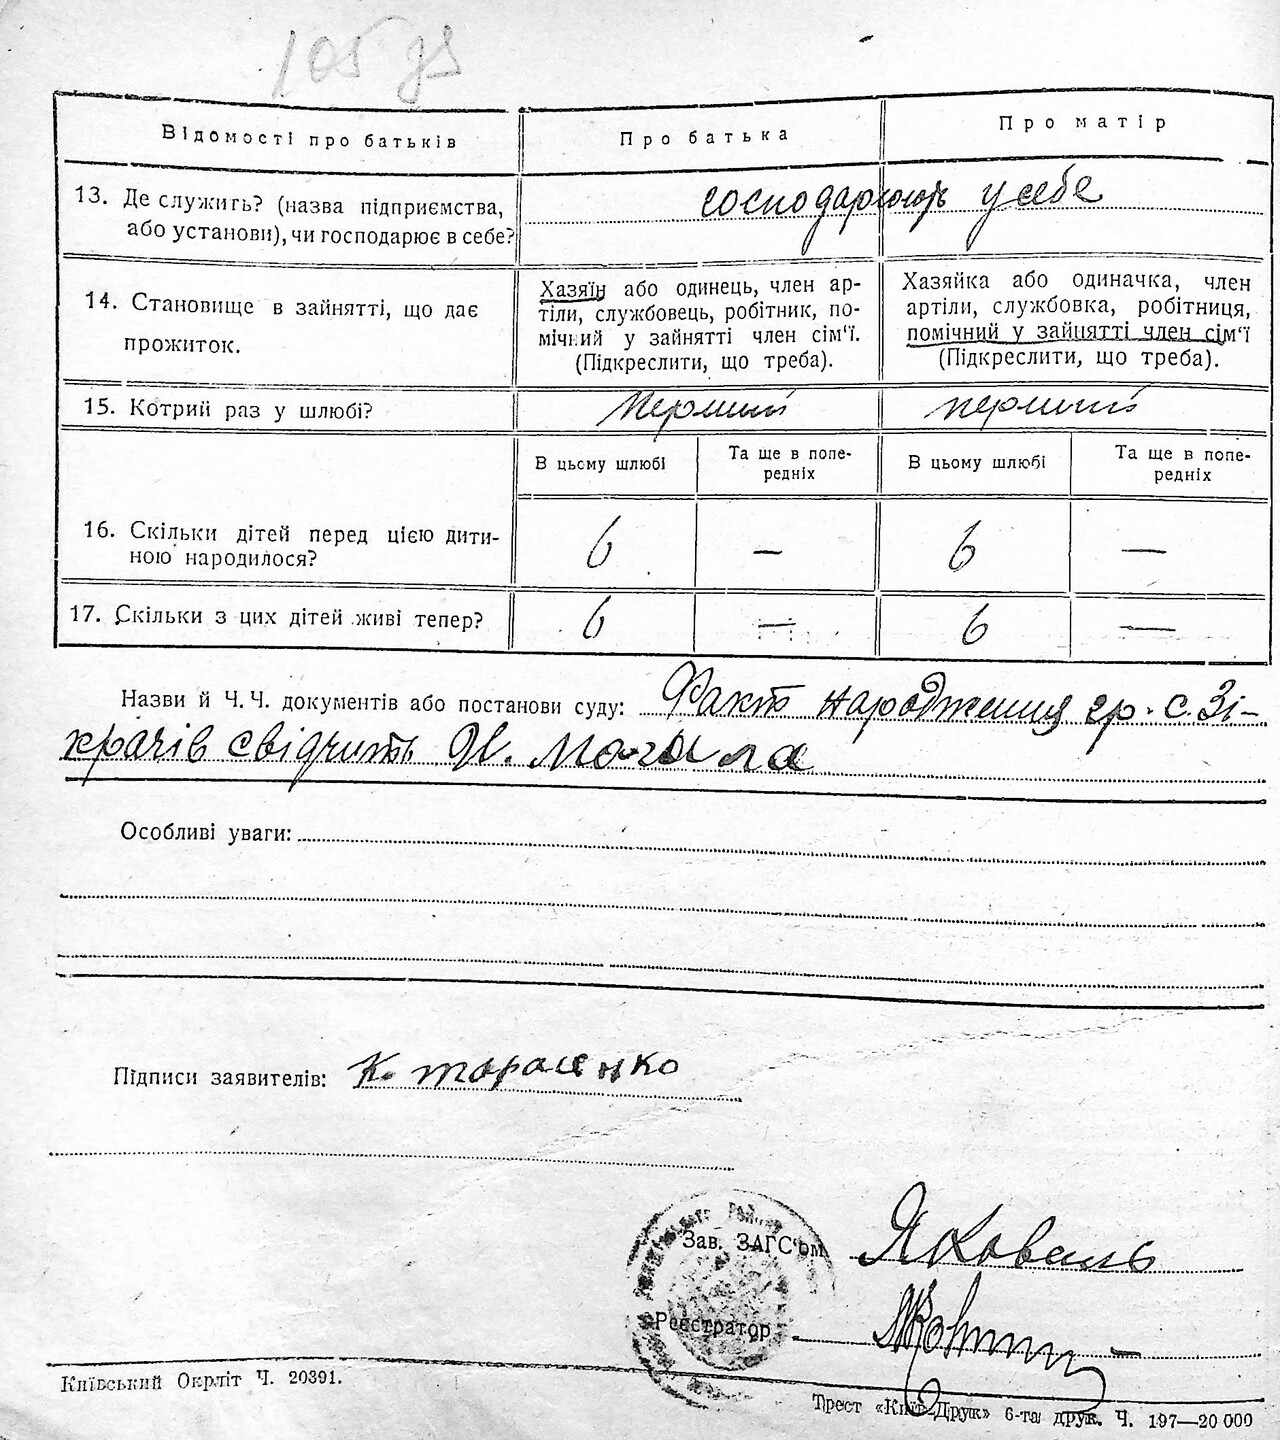 105 дз
Відомості про батьків Про батька Про матір
13. Де служить? (назва підприємства, або установи), чи господарює в себе? господарюють у себе
14. Становище в зайнятті, що дає прожиток.
Хазяїн або одинець, член ар-
тіли, службовець, робітник, по-
мічний у зайнятті член сім'ї.
(Підкреслити, що треба).
Хазяйка або одиначка, член
артіли, службовка, робітниця,
помічний у зайнятті член сім'ї
(Підкреслити, що треба).
15. Котрий раз у шлюбі? перший перший
В цьому шлюбі Та ще в попе-редніх В цьому шлюбі Та ще в попе-редніх
16. Скільки дітей перед цією дити-
ною народилося? 6 — 6 —
17. Скільки з цих дітей живі тепер? 6 — 6 —
Назви й Ч. Ч. документів або постанови суду: Факт народження гр. с. Зі-
крачів свідчить И. Могила
Особливі уваги:
Підписи заявителів: К. Тарасенко
Зав. ЗАГС'ом Я Коваль
Реєстратор
Київський Окрліт Ч. 20391.
Трест «Київ-Друк» 6-та друк. Ч. 197—20 000